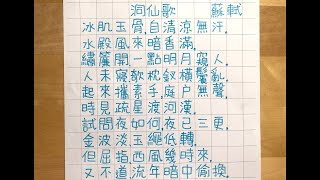 洞仙歌 蘇軾
冰肌玉骨,自清涼無汗,
水殿風來暗香滿,
繡簾開一點明月窺人,
人未寢欹枕釵橫鬢亂,
起來攜素手,庭户無聲,
時見疏星渡河漢,
試問夜如何,夜已三更,
金波淡玉繩低轉,
但屈指,西風幾時來,
又不道,流年暗中偷換.